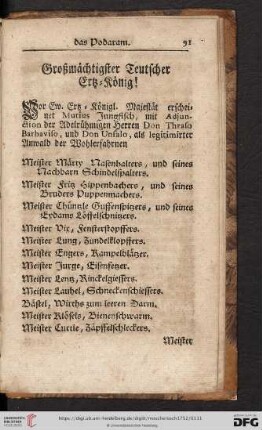 das Podagram. 91
Großmächtigster Teutscher
Ertz-König!
Vor Ew. Ertz-Königl. Majestät erschei-
net Mutius Jungfisch, mit Adjun-
ction der Adelrühmigen Herren Don Thraso
Barbaviso, und Don Unfalo, als legitimirter
Anwald der Wohlerfahrnen
Meister Märty Nasenhalters, und seines
Nachbarn Schindelspalters.
Meister Fritz Hippenbachers, und seines
Bruders Puppenmachers.
Meister Chüntle Guffenspitzers, und seines
Eydams Löffelschnitzers.
Meister Vix, Fensterstopffers.
Meister Lung, Zundelklopffers.
Meister Engers, Kampelblätzer.
Meister Jurge, Eisinfetzer.
Meister Lentz, Rinckelgiessers.
Meister Laubel, Schneckenschiessers.
Bästel, Wirths zum leeren Darm.
Meister Klösels, Bienenschwarm.
Meister Curtle, Zäpffelschleckers.
Meister
https://digi.ub.uni-heidelberg.de/diglit/
© Universitätsbibliothek Heidelberg
UNIVERSITÄTS-
BIBLIOTHEK
HEIDELBERG
Gefördert durch die
DFG